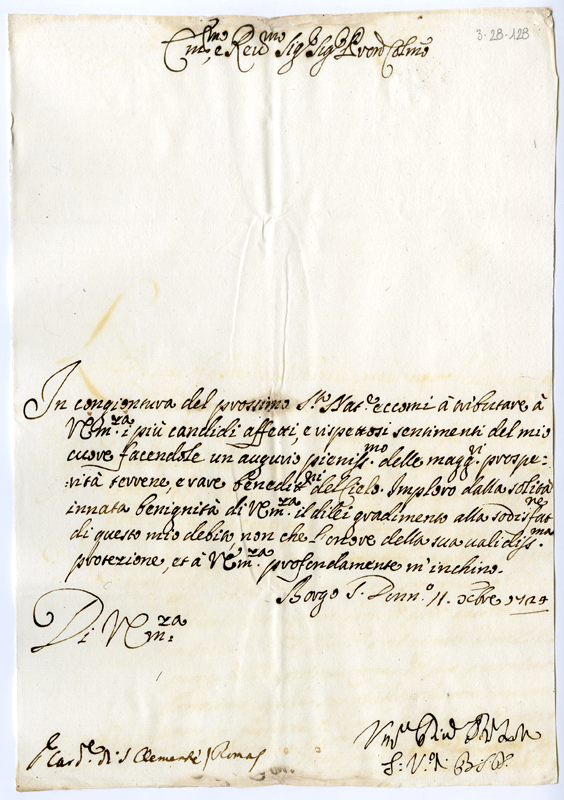 3-28-128
Em.mo, e Reu.mo Sig.r Sig.r P.ron Col.mo
In congiontura del prossimo S.to Nat.e eccomi à tributare à
V. Em.za i più candidi affetti, e rispettosi sentimenti del mio
cuore facendole un augurio pieniss.mo delle magg.ri prospe=
=rità terrene, e rare benediz.ni del Cielo. Imploro dalla solita
innata benignità di V. Em.za il di lei gradimento alla sodisfat.ne
di questo mio debito non che l'onore della sua validiss.ma
protezione, et à V. Em.za profondamente m'inchino.
Borgo S. Donn.o 11. Xcbre 1724
Di V. Em.za
Card.e di S Clemente / Roma /